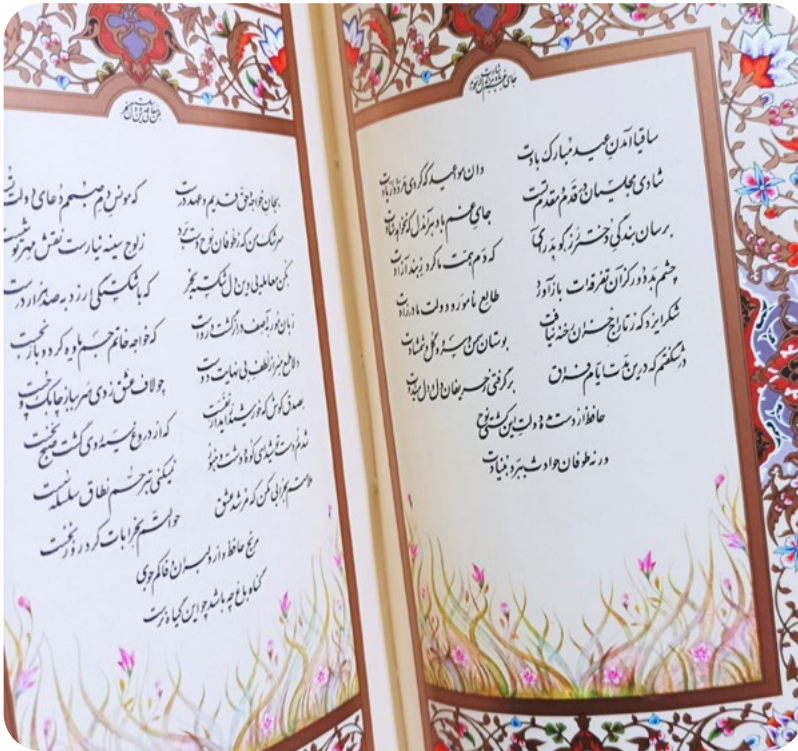 ساقیا آمدن عید مبارک بادت
وان مواعید که کردی مرواد از یادت
شادی مجلسیان در قدم و مقدم تست
جای غم باد هر آن دل که نخواهد شادت
برسان بندگی دختر رز گو بدر آی
که دم همت ما کرد ز بند آزادت
چشم بد دور کزان تفرقه‌ات باز آورد
طالع نامور و دولت مادرزادت
شکر ایزد که ز تاراج خزان رخنه نیافت
بوستان سمن و سرو و گل و شمشادت
در شگفتم که درین مدت ایام فراق
برگرفتی ز حریفان دل و دل میدادت
حافظ از دست مده دولت این کشتی نوح
ورنه طوفان حوادث ببرد بنیادت
بجان خواجه و حق قدیم و عهد درست
که مونس دم صبحم دعای دولت
سرشک من که ز طوفان نوح دست برد
ز لوح سینه نیارست نقش مهر تو شست
بکن معامله‌ای وین دل شکسته بخر
که با شکستگی ارزد به صد هزار درست
زبان مور به آصف دراز گشت و رواست
که خواجه خاتم جم یاوه کرد و باز نجست
دلا طمع مبر از لطف بی نهایت دوست
چو لاف عشق زدی سر بباز چابک و چست
بصدق کوش که خورشید زاید از نفست
که از دروغ سیه روی گشت صبح نخست
شدم ز دست تو شیدای کوه و دشت و هنوز
نمیکنی بترحم نطاق سلسله سست
ملامتم بخرابی مکن که مرشد عشق
حوالتم بخرابات کرد روز نخست
مرنج حافظ و از دلبران وفا کم جوی
گناه باغ چه باشد چو این گیاه نرست